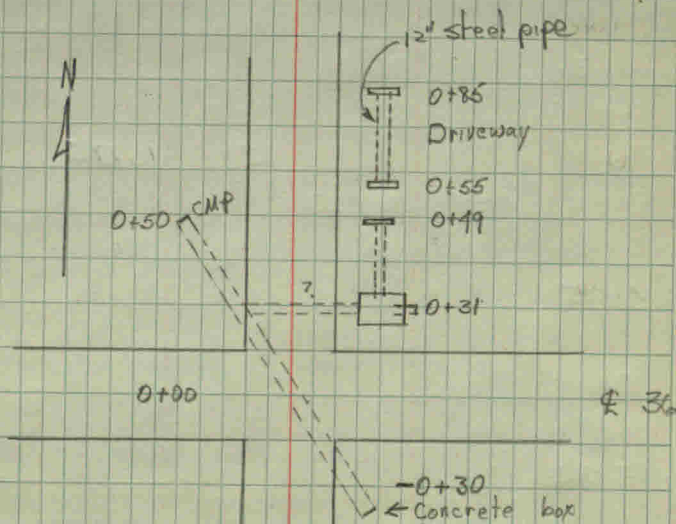 12" steel pipe
N
0+85
Driveway
0+55
CMP
0+50
0+49
?
0+31
0+00
℄ 36
-0+30
Concrete box